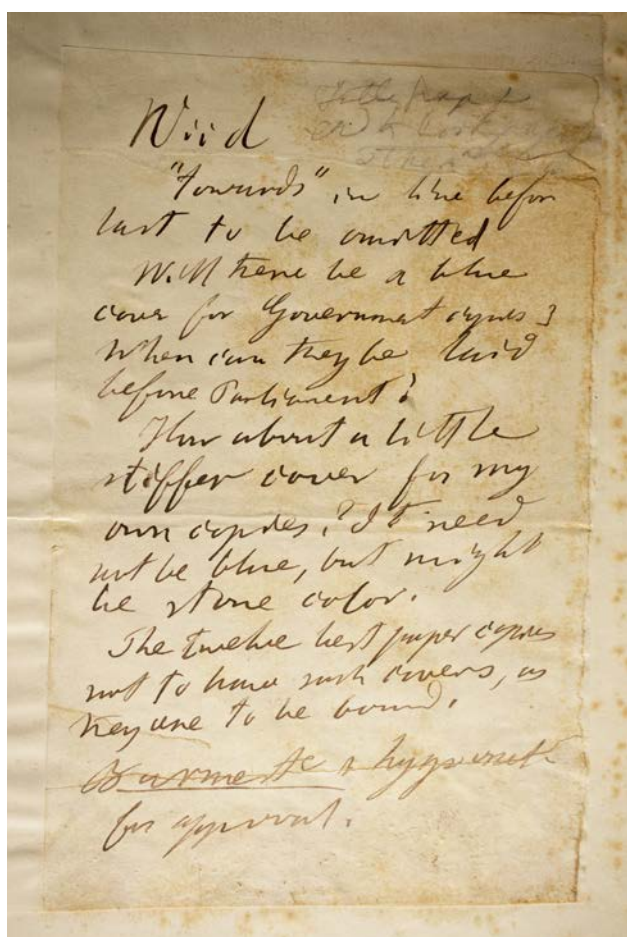 "Towards" in line before
last to be omitted
Will there be a blue
cover for Government copies?
When can they be laid
before Parliament?
How about a little
stiffer cover for my
own copies? It need
not be blue, but might
be stone color.
The twelve best paper copies
not to have such covers, as
they are to be bound.
for approval.